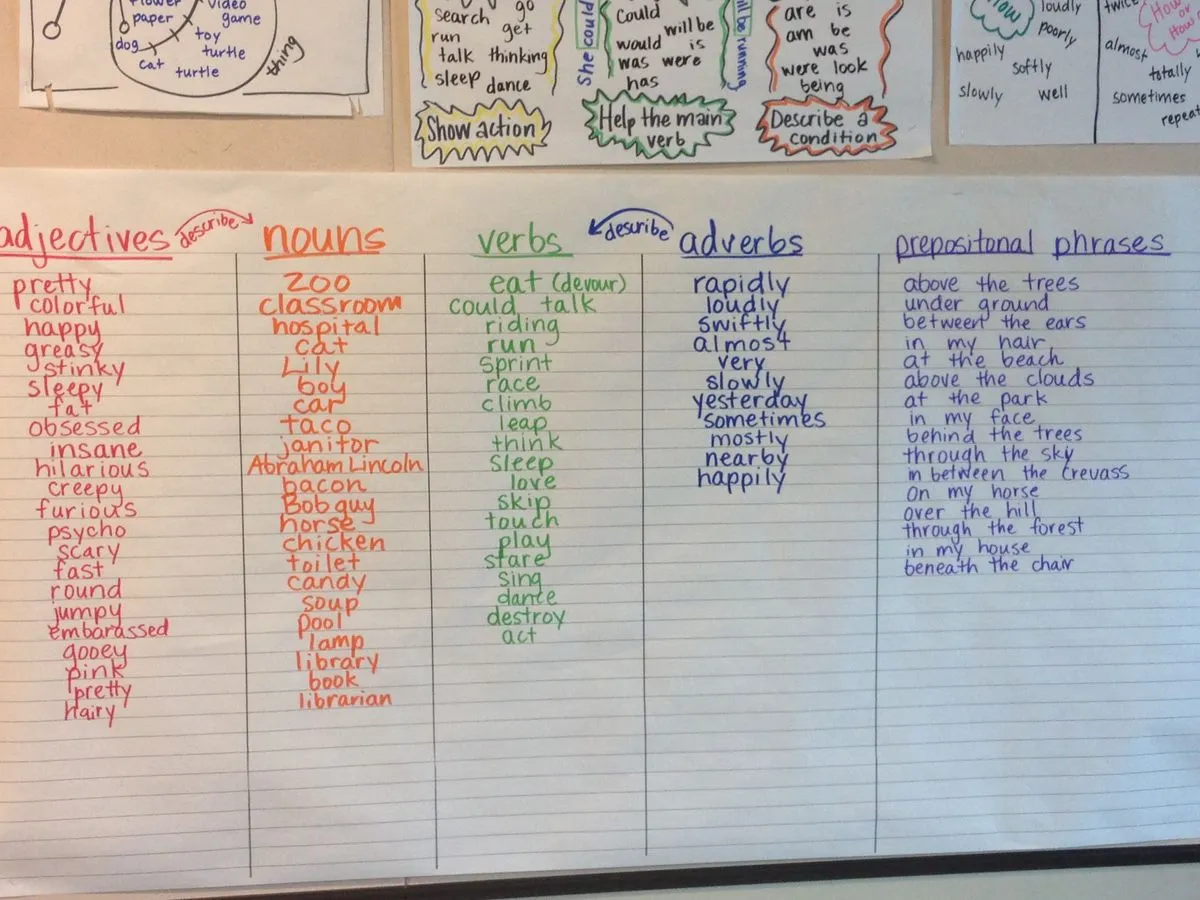 flower
video
paper
game
dog
toy
cat
turtle
turtle
thing
search go
run get
talk thinking
sleep dance
Show action
She could
Could
will be
would is
was were
has
will be running
Help the main
verb
are is
am be
was
were look
being
Describe a
condition
How
loudly
poorly
happily
softly
slowly well
twice
How
or
How
almost
totally
sometimes
repeat
adjectives
describe
pretty
colorful
happy
greasy
stinky
sleepy
fat
obsessed
insane
hilarious
creepy
furious
psycho
scary
fast
round
jumpy
embarassed
gooey
pink
pretty
hairy
nouns
zoo
classroom
hospital
cat
Lily
boy
car
taco
janitor
Abraham Lincoln
bacon
Bob guy
horse
chicken
toilet
candy
soup
pool
lamp
library
book
librarian
verbs
describe
eat (devour)
could talk
riding
run
sprint
race
climb
leap
think
sleep
love
skip
touch
play
stare
sing
dance
destroy
act
adverbs
rapidly
loudly
swiftly
almost
very
slowly
yesterday
sometimes
mostly
nearby
happily
prepositonal phrases
above the trees
under ground
between the ears
in my hair
at the beach
above the clouds
at the park
in my face
behind the trees
through the sky
in between the crevass
on my horse
over the hill
through the forest
in my house
beneath the chair